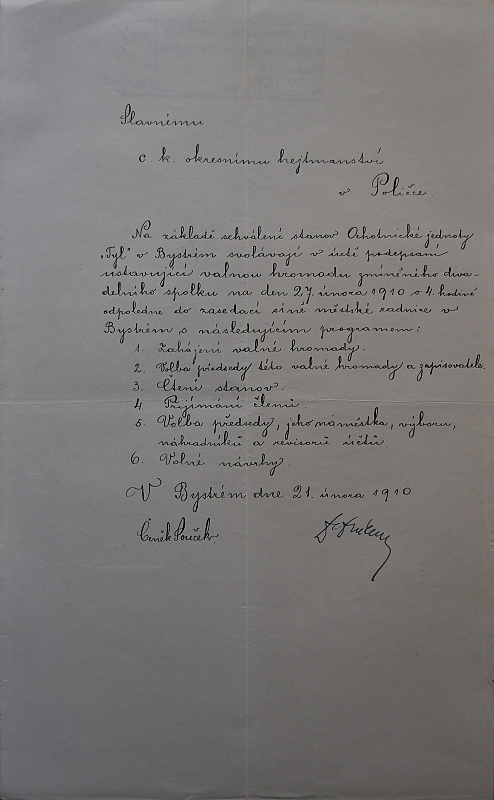 Slavnému
c. k. okresnímu hejtmanství
v Poličce.
Na základě schválení stanov Ochotnické jednoty
"Tyl" v Bystrém svolávají v úctě podepsaní
ustavující valnou hromadu zmíněného diva-
delního spolku na den 27. února 1910 o 4. hodině
odpoledne do zasedací síně městské radnice v
Bystrém s následujícím programem:
1. Zahájení valné hromady.
2. Volba předsedy této valné hromady a zapisovatele.
3. Čtení stanov.
4. Přijímání členů.
5. Volba předsedy, jeho náměstka, výboru,
náhradníků a revisorů účtů.
6. Volné návrhy.
V Bystrém dne 21. února 1910
Čeněk Souček.